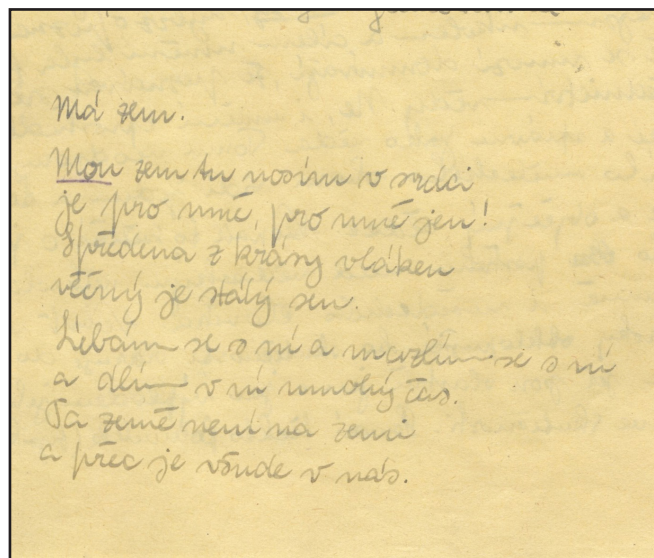 Má zem.
Mou zem tu nosím v srdci
je pro mně, pro mně jen!
Spředena z krásy vláken
věčný je stálý sen.
Líbám se s ní a mazlím se s ní
a dlím v ní mnohý čas.
Ta země není na zemi
a přec je všude v nás.